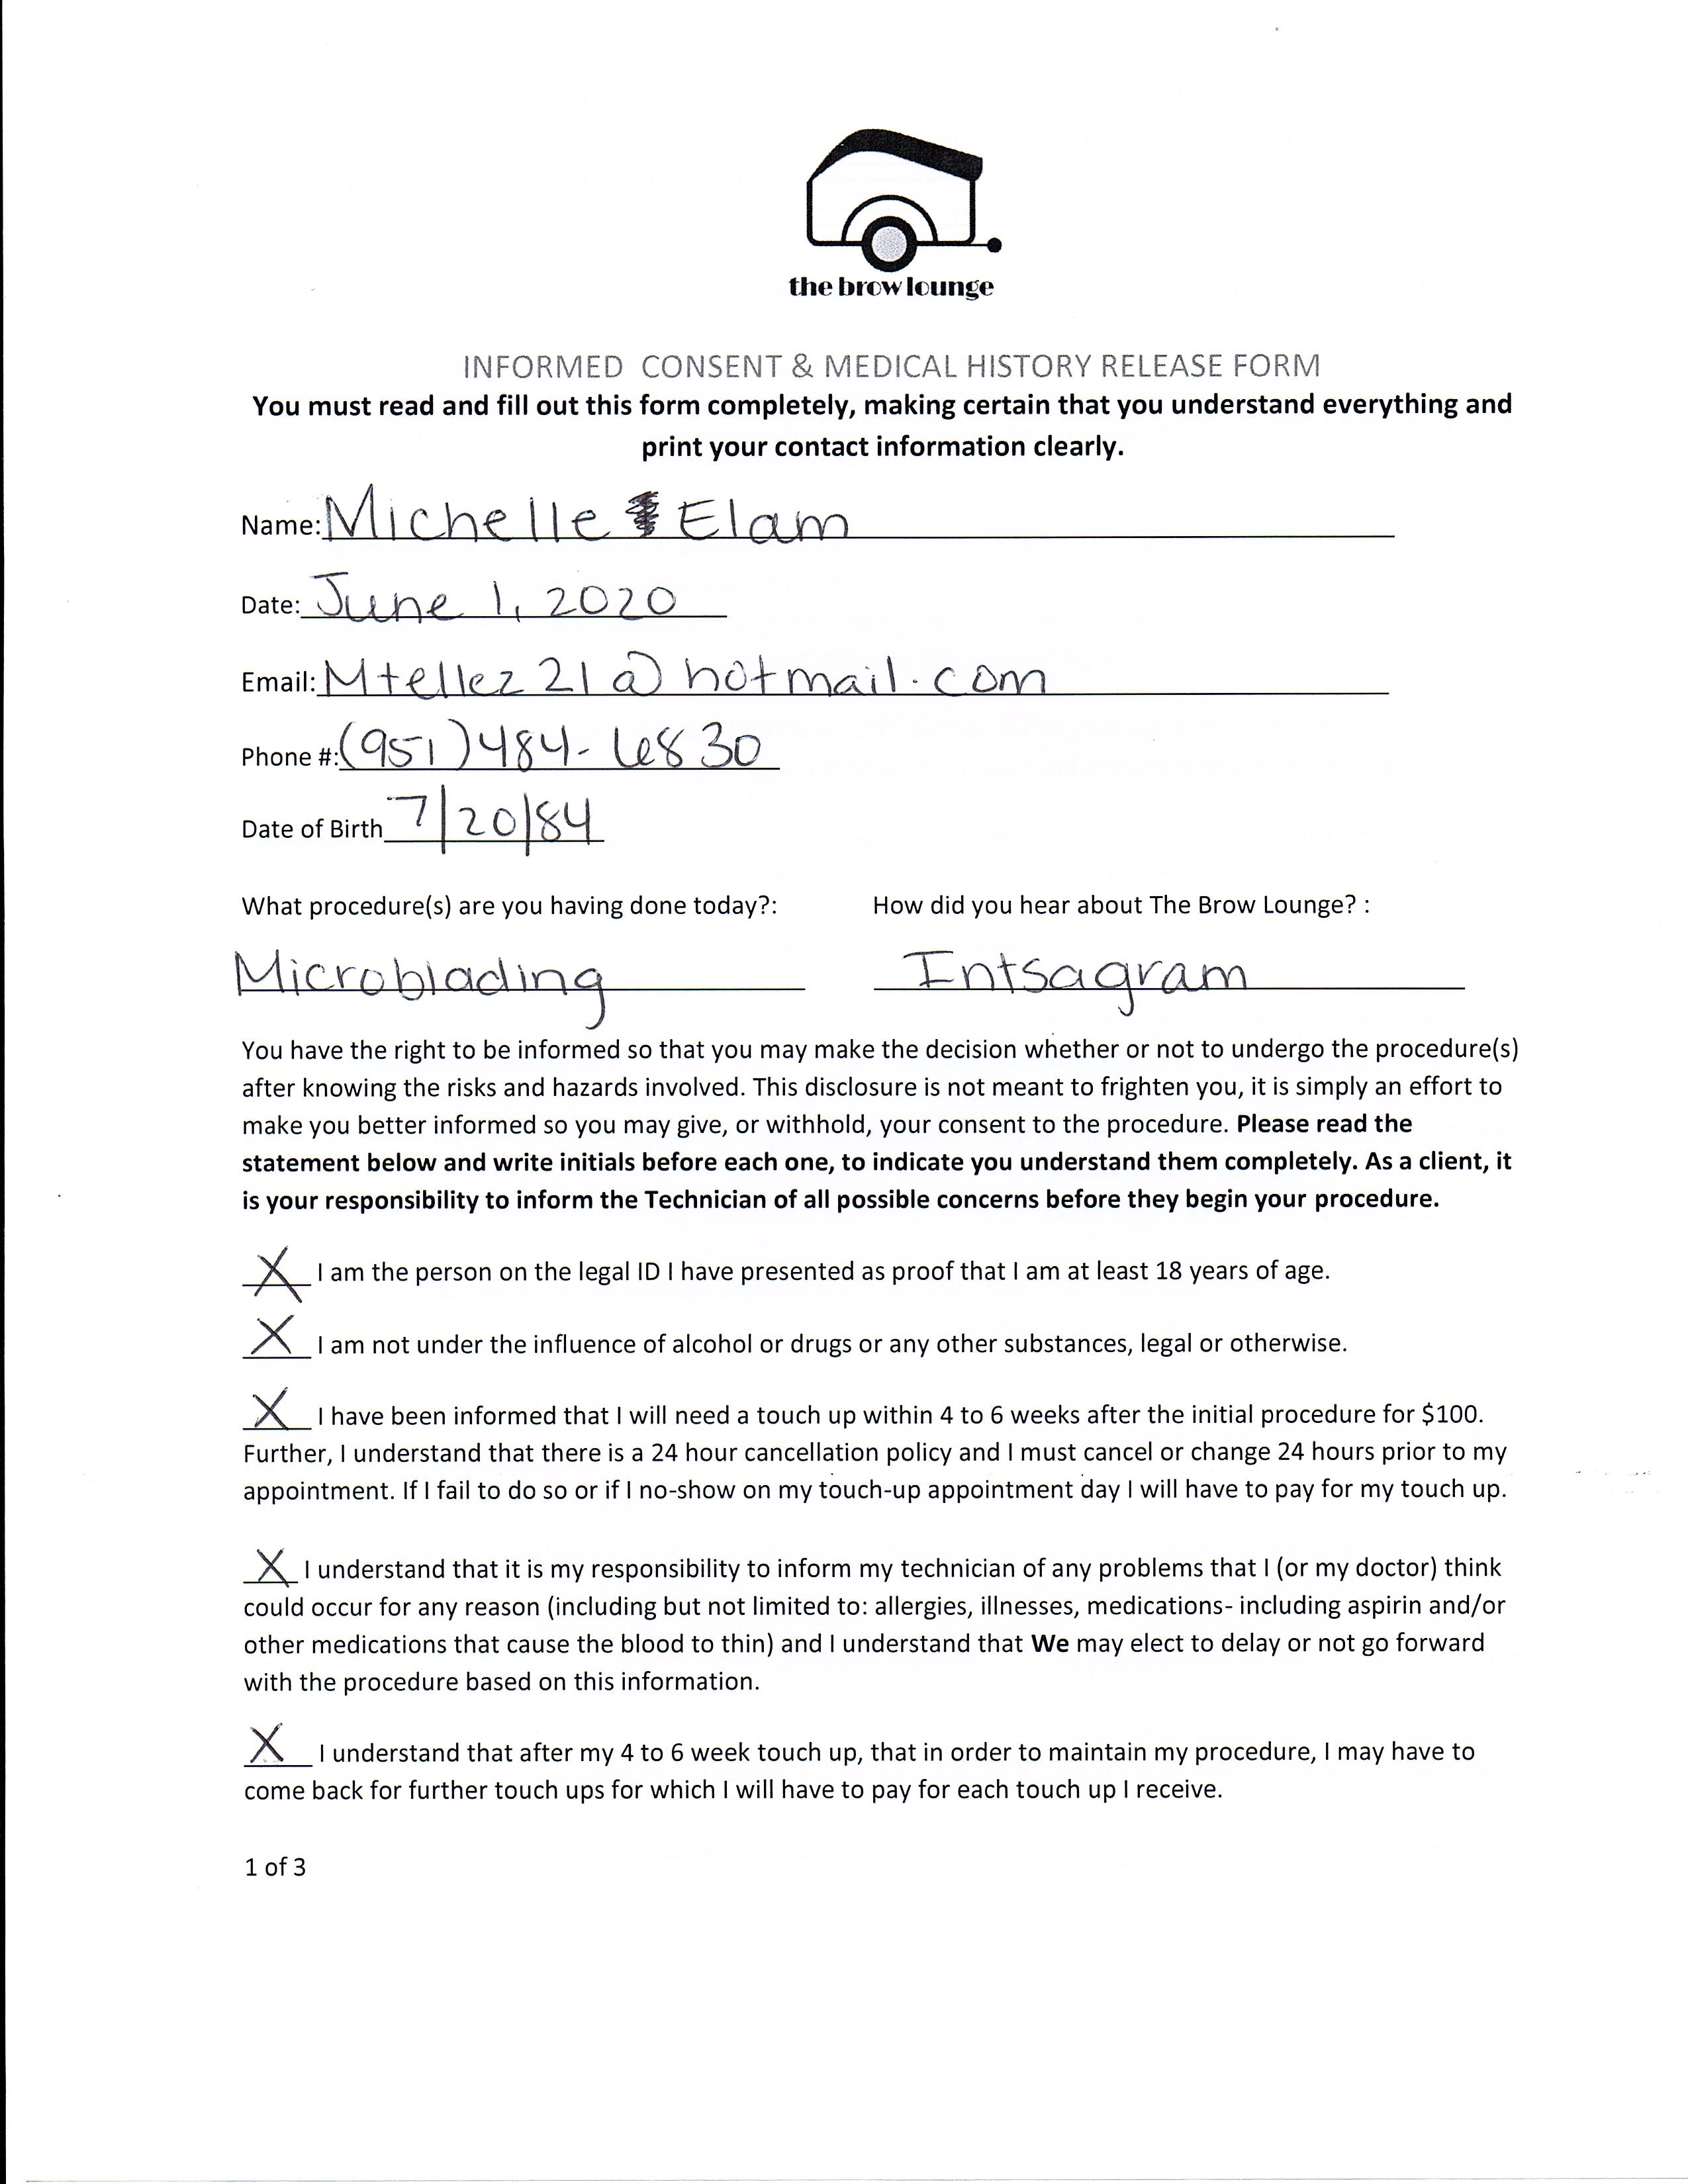 the brow lounge
INFORMED CONSENT & MEDICAL HISTORY RELEASE FORM
You must read and fill out this form completely, making certain that you understand everything and
print your contact information clearly.
Name: Michelle Elam
Date: June 1, 2020
Email: Mtellez21@hotmail.com
Phone #: (951)484-6830
Date of Birth 7/20/84
What procedure(s) are you having done today?: How did you hear about The Brow Lounge? :
Microblading Intsagram
You have the right to be informed so that you may make the decision whether or not to undergo the procedure(s)
after knowing the risks and hazards involved. This disclosure is not meant to frighten you, it is simply an effort to
make you better informed so you may give, or withhold, your consent to the procedure. Please read the
statement below and write initials before each one, to indicate you understand them completely. As a client, it
is your responsibility to inform the Technician of all possible concerns before they begin your procedure.
X I am the person on the legal ID I have presented as proof that I am at least 18 years of age.
X I am not under the influence of alcohol or drugs or any other substances, legal or otherwise.
X I have been informed that I will need a touch up within 4 to 6 weeks after the initial procedure for $100.
Further, I understand that there is a 24 hour cancellation policy and I must cancel or change 24 hours prior to my
appointment. If I fail to do so or if I no-show on my touch-up appointment day I will have to pay for my touch up.
X I understand that it is my responsibility to inform my technician of any problems that I (or my doctor) think
could occur for any reason (including but not limited to: allergies, illnesses, medications- including aspirin and/or
other medications that cause the blood to thin) and I understand that We may elect to delay or not go forward
with the procedure based on this information.
X I understand that after my 4 to 6 week touch up, that in order to maintain my procedure, I may have to
come back for further touch ups for which I will have to pay for each touch up I receive.
1 of 3